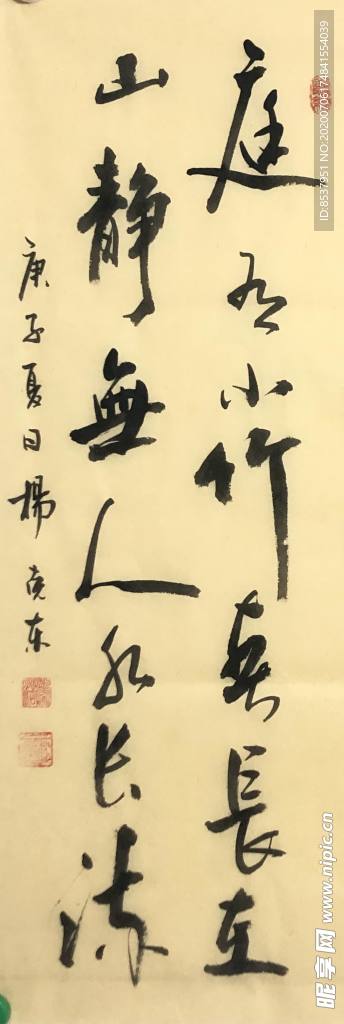 庭有小竹春長在
山靜無人水長流
庚子夏日楊克东
ID:8537951 NO:20200706174841554039
昵享网 www.nipic.cn